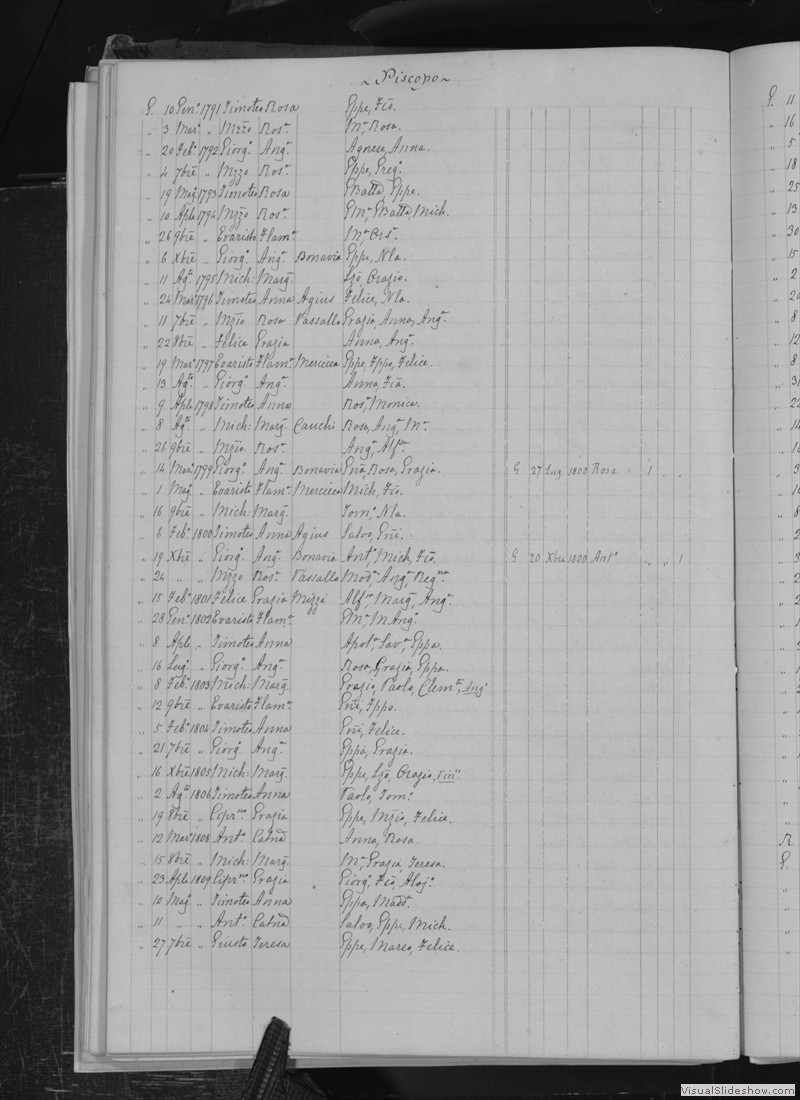 ~ Piscopo ~
G. 10 Genº 1791 Timoteo Rosa Gppe, Fcõ.
„ 3 Marº „ Mzzo Rosª. Mª Rosa.
„ 20 Febº 1792 Giorgº. Angª. Agnese, Anna.
„ 4 7bre „ Mzzo Rosª. Gppe, Gregº.
„ 19 Magº 1793 Timoteo Rosa GBatta, Gppe.
„ 10 Aple 1794 Mzzo Rosª. GMª, GBatta, Mich.
„ 26 9bre „ Evaristo Flamª. Mª Orsª.
„ 6 Xbre „ Giorgº. Angª. Bonavia Gppe, Nla.
„ 11 Agº. 1795 Mich: Margª. Lzõ, Orazio.
„ 24 Marº 1796 Timoteo Anna Agius Felice, Nla.
„ 11 7bre „ Mzio Rosa Vassallo Grazia, Anna, Angª.
„ 22 8bre „ Felice Grazia Anna, Angª.
„ 19 Marº 1797 Evaristo Flamª. Mercieca Gppe, Fppo, Felice.
„ 13 Agº. „ Giorgº. Angª. Anna, Fca.
„ 9 Aple 1798 Timoteo Anna Rosª, Monica.
„ 8 Agº. „ Mich: Margª. Cauchi Rosa, Angª, Mª.
„ 26 9bre „ Mzio Rosª. Angª, Alfsa.
„ 14 Marº 1799 Giorgº. Angª. Bonavia Gna, Rosa, Grazia. G 27 Lug 1800 Rosa 1 „ „
„ 1 Magº „ Evaristo Flamª. Mercieca Mich, Fcõ.
„ 16 9bre „ Mich: Margª. Tomª, Nla.
„ 6 Febº 1800 Timoteo Anna Agius Salvo, Gni.
„ 19 Xbre „ Giorgº. Angª. Bonavia Antº, Mich, Fcõ. G 20 Xbre 1800 Antº „ „ 1
„ 24 „ „ Mzzo Rosª. Vassallo Modª, Angª, Regna.
„ 15 Febº 1801 Felice Grazia Mizzi Alfsa, Margª, Angª.
„ 28 Genº 1802 Evaristo Flamª. GMª, MAngº.
„ 8 Aple „ Timoteo Anna Apolª, Savª, Gppa.
„ 16 Lugº. „ Giorgº. Angª. Rosa, Grazia, Gppa.
„ 8 Febº 1803 Mich: Margª. Grazio, Paolo, Clemte, Angº
„ 12 9bre „ Evaristo Flamª. Gni, Fppo.
„ 5 Febº 1804 Timoteo Anna Gni, Felice.
„ 21 7bre „ Giorgº. Angª. Gppa, Grazia.
„ 16 Xbre 1805 Mich: Margª. Gppe, Lzõ, Orazio,
„ 2 Agº 1806 Timoteo Anna Paolo, Tomº.
„ 19 8bre „ Ciprno Grazia Gppe, Mzio, Felice.
„ 12 Marº 1808 Antº. Catna Anna, Rosa.
„ 15 8bre „ Mich: Margª. Mª, Grazia, Teresa.
„ 23 Aple 1809 Ciprno Grazia Giorgº, Fcõ, Alojº.
„ 10 Magº „ Timoteo Anna Gppa, Maddª.
„ 11 „ „ Antº. Catna Salvo, Gppe, Mich.
„ 27 7bre „ Giusto Teresa Gppe, Marco, Felice.
VisualSlideshow.com